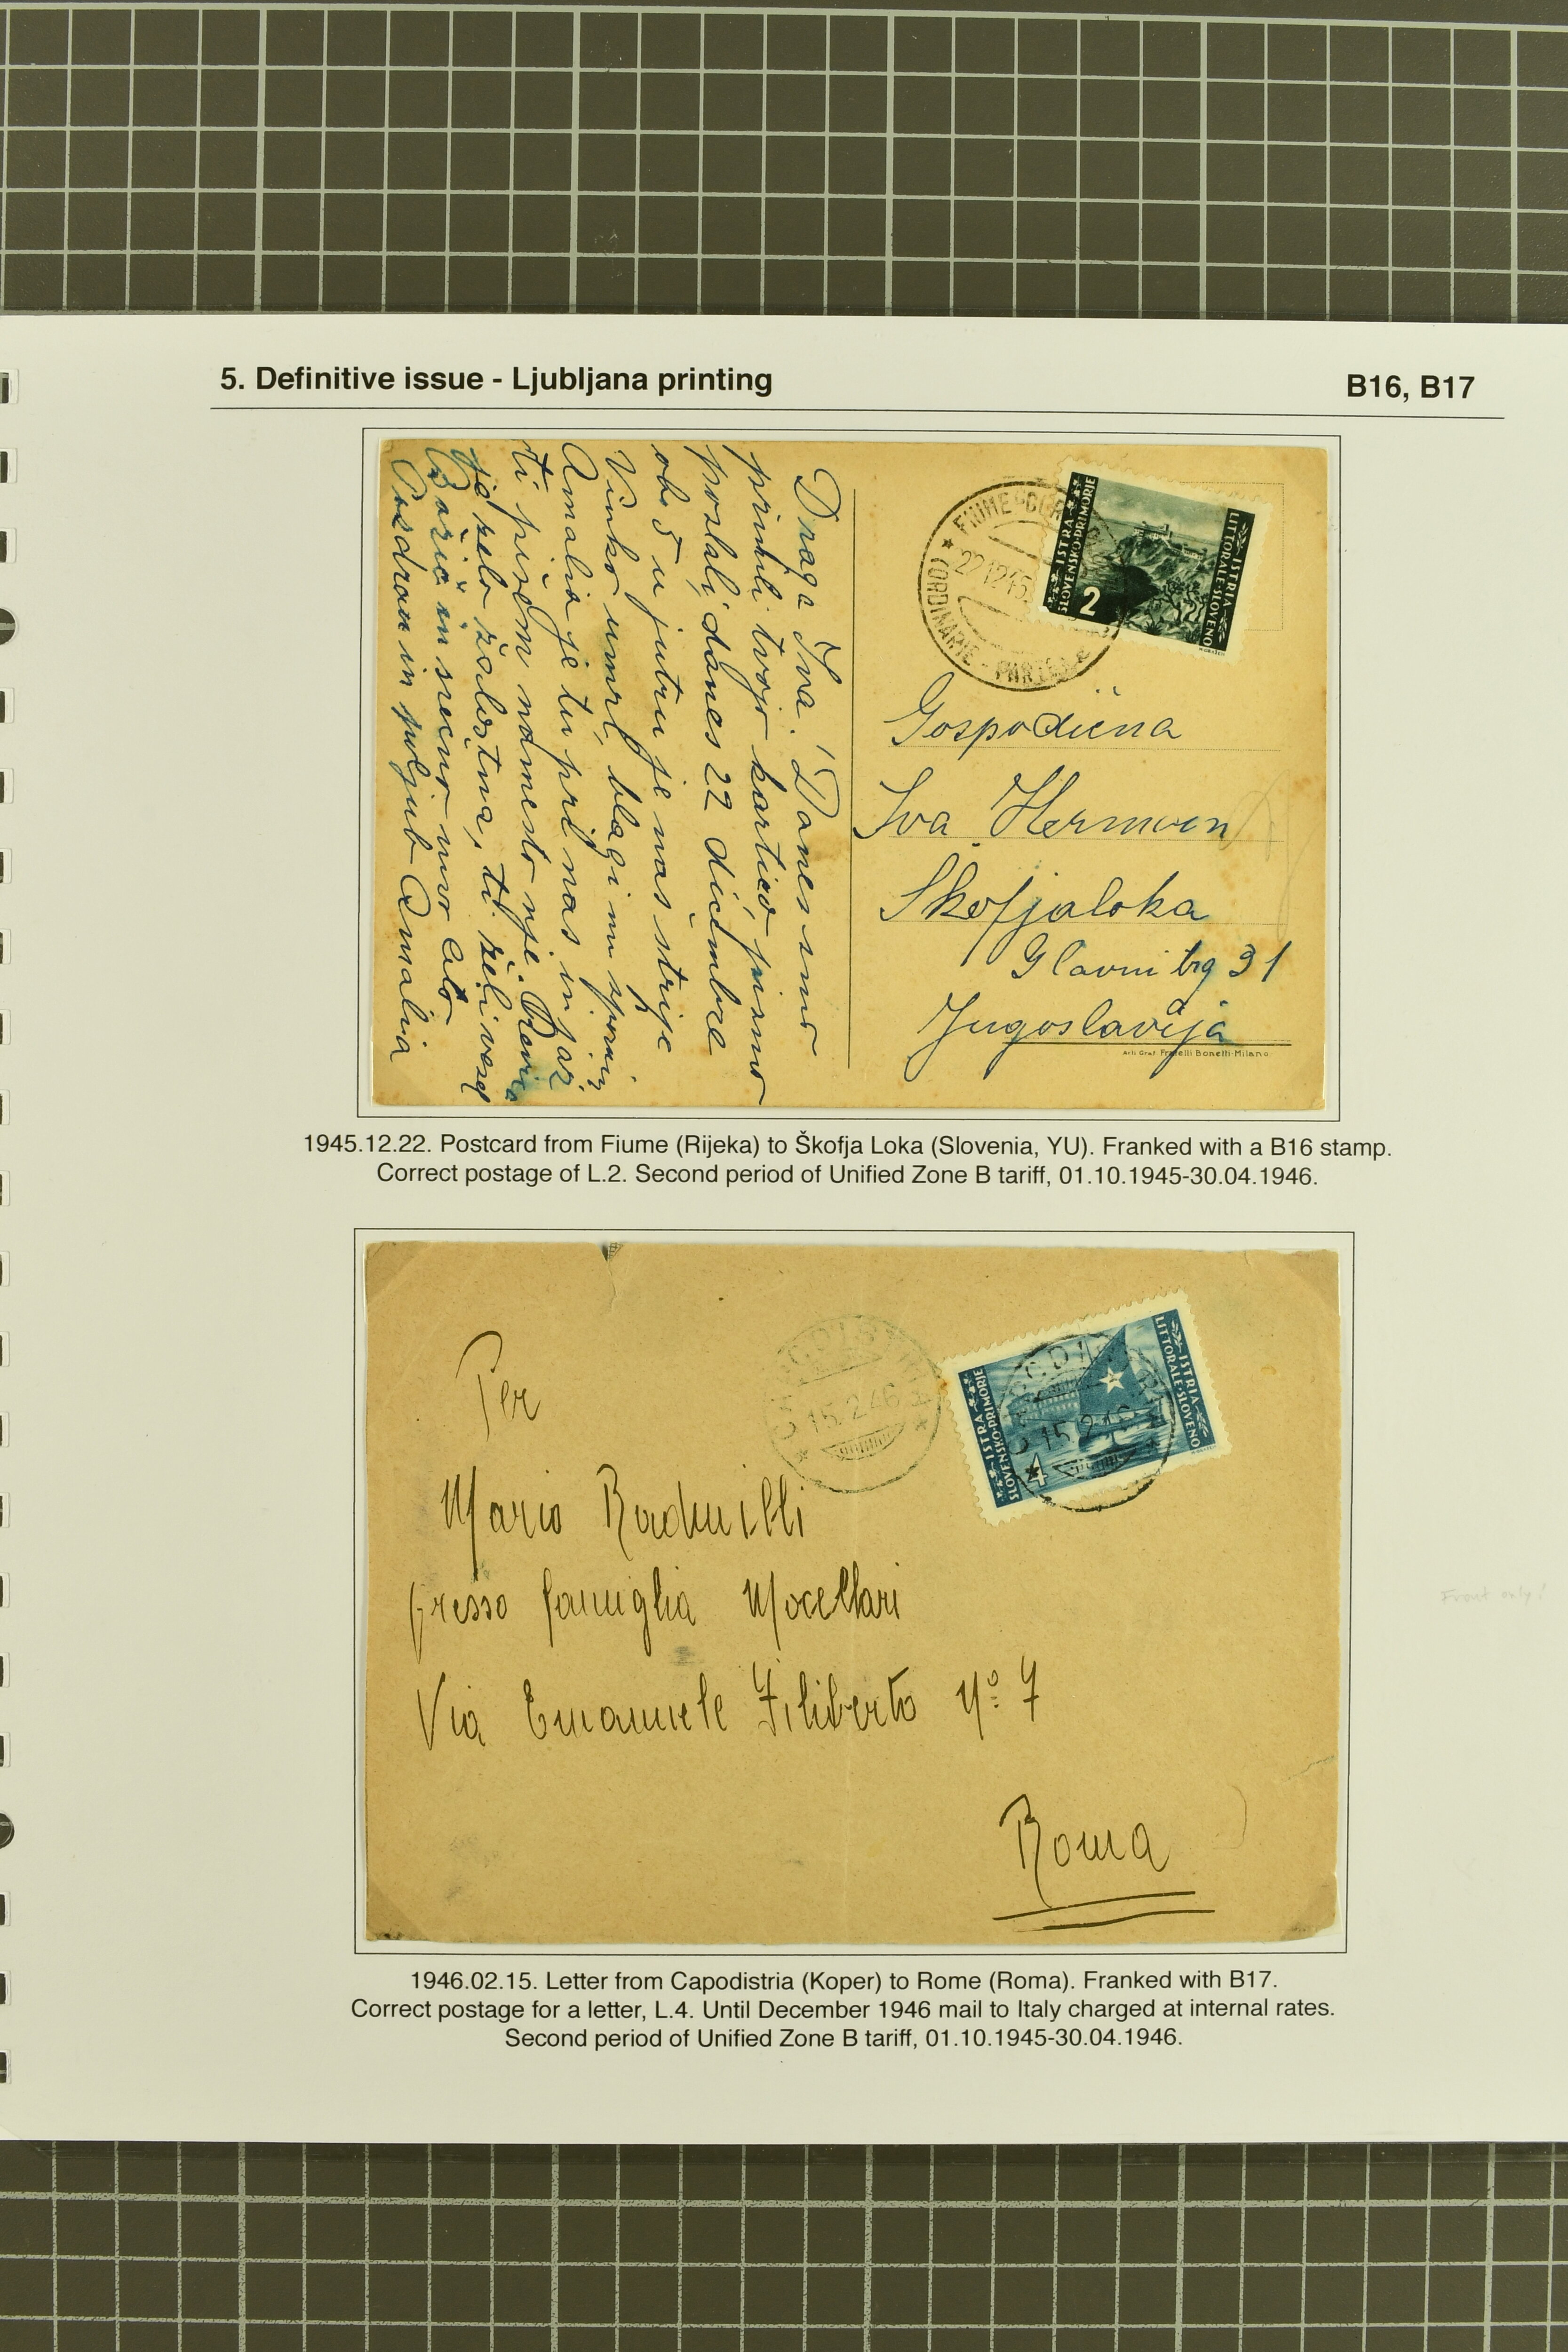 5. Definitive issue - Ljubljana printing
B16, B17
Draga Iva. Danes smo
prinili tvojo kartico, pismo
poslali danes 22 dicembre
ob 5 u jutru je naš strijc
Vinko umrl, blagi mu spomin
Amalia je tu pri nas in jaz
ti pišem namesto nje. Revica
je zelo žalostna, ti želi vesel
Božič in srecno novo leto
Pozdrav in poljub Amalia
FIUME
22.12.45
(ORDINARIE - PARTENZA
ISTRA
SLOVENSKO PRIMORJE
2
ISTRIA
LITTORALE SLOVENO
Gospodična
Iva Herman
Škofjaloka
Glavni trg 31
Jugoslavija
Arti Graf. Fratelli Bonetti-Milano
1945.12.22. Postcard from Fiume (Rijeka) to Škofja Loka (Slovenia, YU). Franked with a B16 stamp.
Correct postage of L.2. Second period of Unified Zone B tariff, 01.10.1945-30.04.1946.
CAPODISTRIA
15.2.46
ISTRA
SLOVENSKO PRIMORJE
4
ISTRIA
LITTORALE SLOVENO
15.2.46
Per
Mario
presso famiglia Mocellari
Via Emanuele Filiberto Nº 7
Roma
Front only!
1946.02.15. Letter from Capodistria (Koper) to Rome (Roma). Franked with B17.
Correct postage for a letter, L.4. Until December 1946 mail to Italy charged at internal rates.
Second period of Unified Zone B tariff, 01.10.1945-30.04.1946.